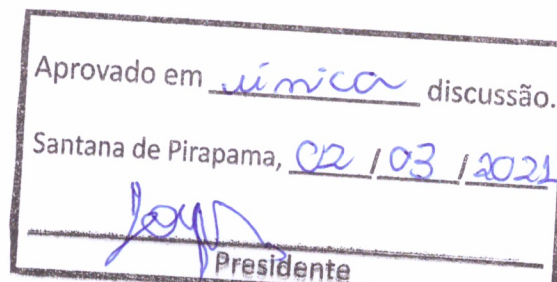 Aprovado em única discussão.
Santana de Pirapama, 02 / 03 / 2021
Presidente